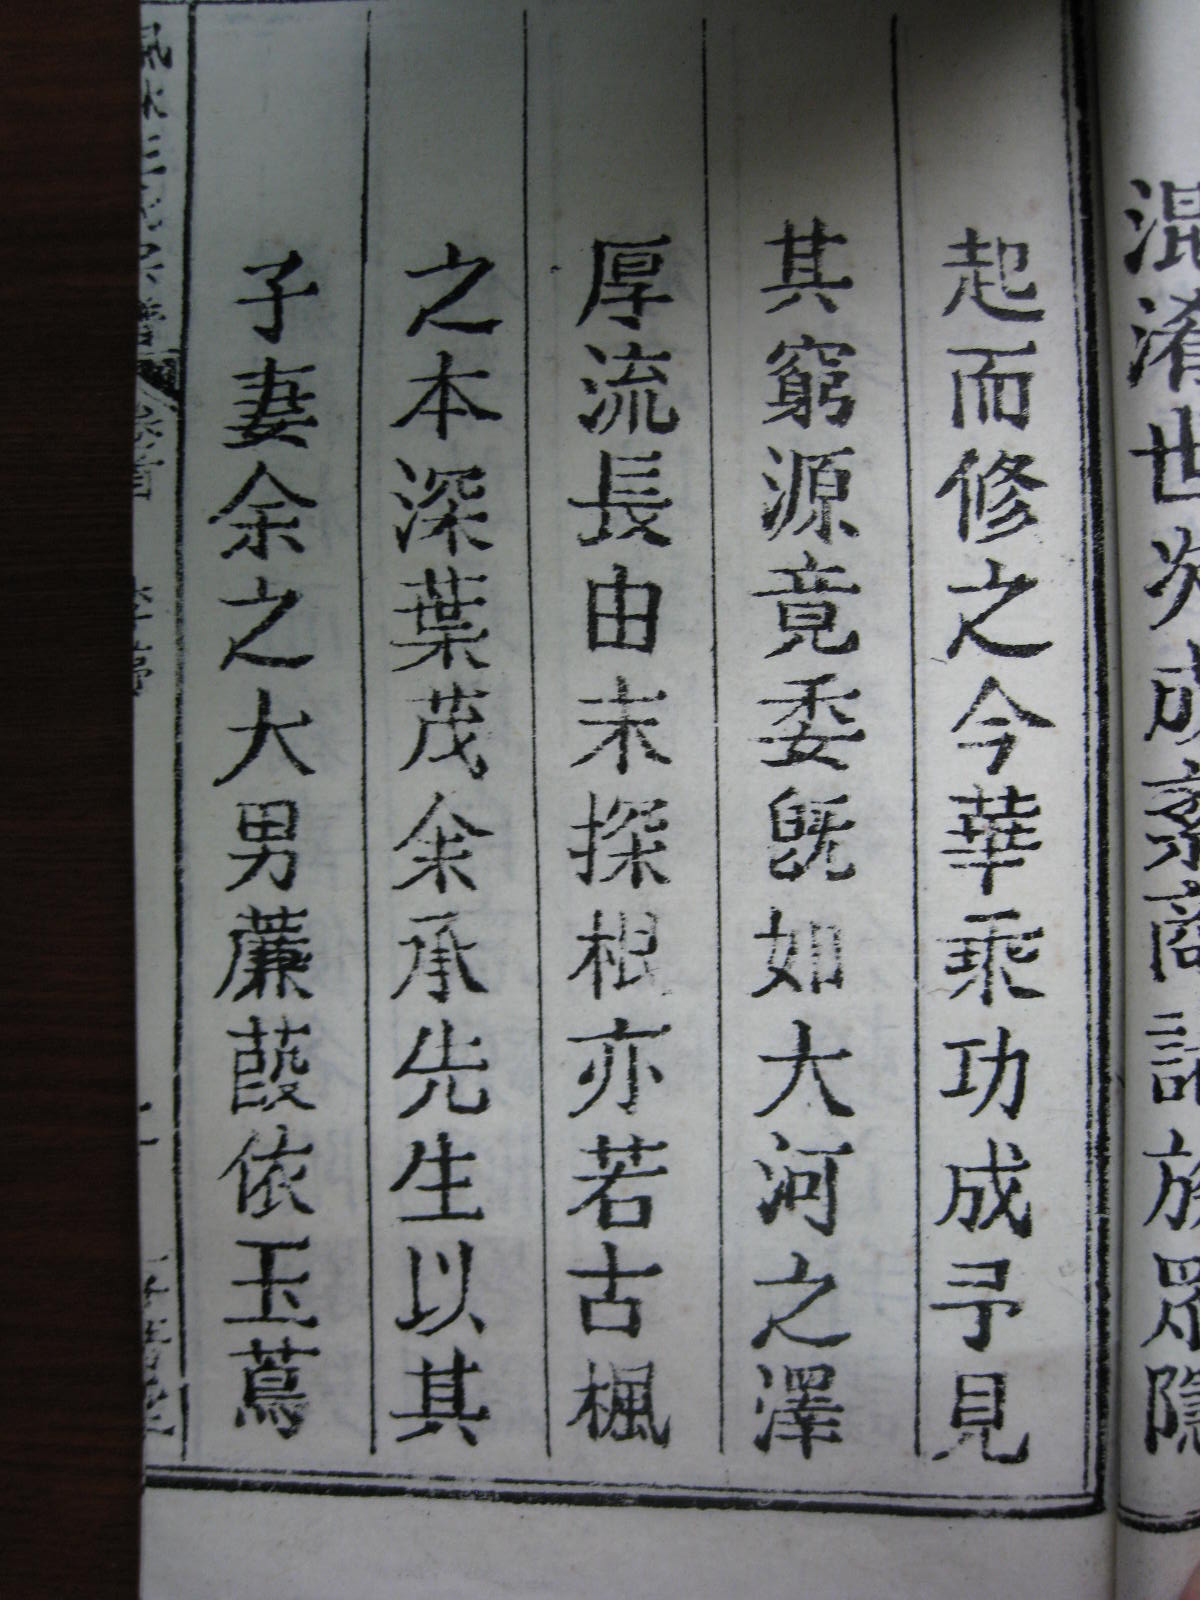 混淆世次成紊商訛族眾隱
起而修之今華乘功成予見
其窮源竟委旣如大河之澤
厚流長由末探根亦若古楓
之本深葉茂余承先生以其
子妻余之大男蒹葭依玉蔦